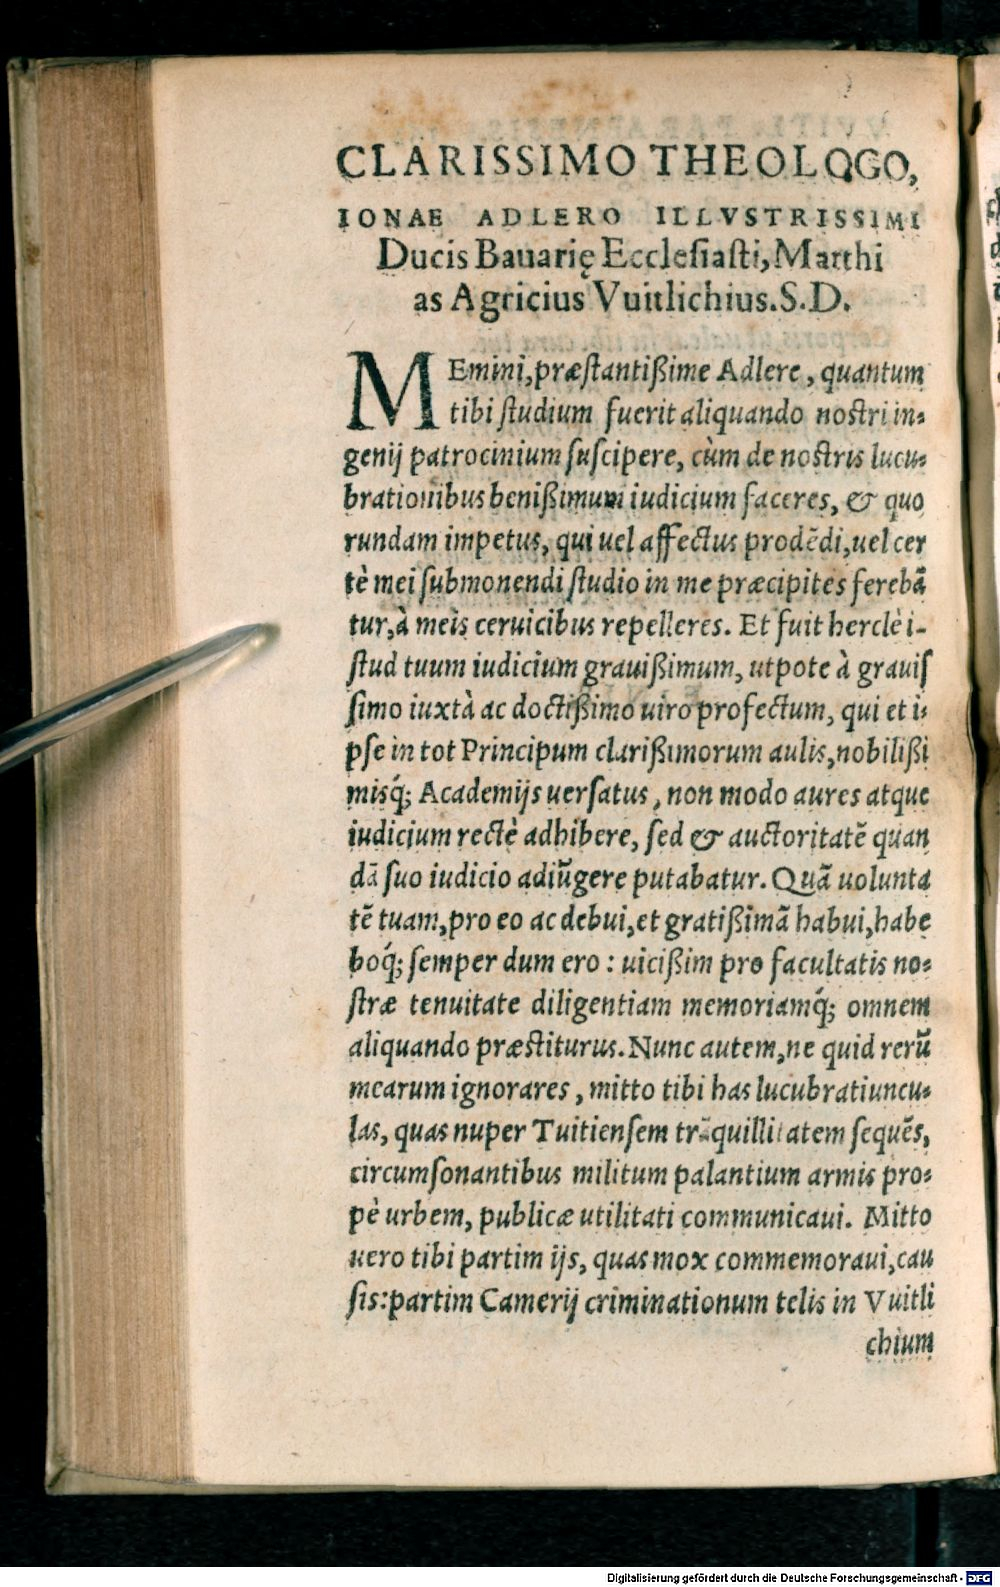 CLARISSIMO THEOLOGO,
IONAE ADLERO ILLVSTRISSIMI
Ducis Bauarię Ecclesiasti, Matthi
as Agricius Vuitlichius. S. D.
MEmini, præstantißime Adlere, quantum
tibi studium fuerit aliquando nostri in-
genij patrocinium suscipere, cùm de nostris lucu-
brationibus benißimum iudicium faceres, & quo
rundam impetus, qui uel affectus prodẽdi, uel cer
tè mei submonendi studio in me præcipites ferebã
tur, à meis ceruicibus repelleres. Et fuit herclè i-
stud tuum iudicium grauißimum, utpote à grauis
simo iuxtà ac doctißimo uiro profectum, qui et i-
pse in tot Principum clarißimorum aulis, nobilißi
misq́; Academijs uersatus, non modo aures atque
iudicium rectè adhibere, sed & auctoritatẽ quan
dã suo iudicio adiũgere putabatur. Quã uolunta
tẽ tuam, pro eo ac debui, et gratißimã habui, habe
boq́; semper dum ero: uicißim pro facultatis no-
stræ tenuitate diligentiam memoriamq́; omnem
aliquando præstiturus. Nunc autem, ne quid rerũ
mearum ignorares, mitto tibi has lucubratiuncu-
las, quas nuper Tuitiensem trãquillitatem sequẽs,
circumsonantibus militum palantium armis pro-
pè urbem, publicæ utilitati communicaui. Mitto
uero tibi partim ijs, quas mox commemoraui, cau
sis: partim Camerij criminationum telis in Vuitli
chium
Digitalisierung gefördert durch die Deutsche Forschungsgemeinschaft - DFG